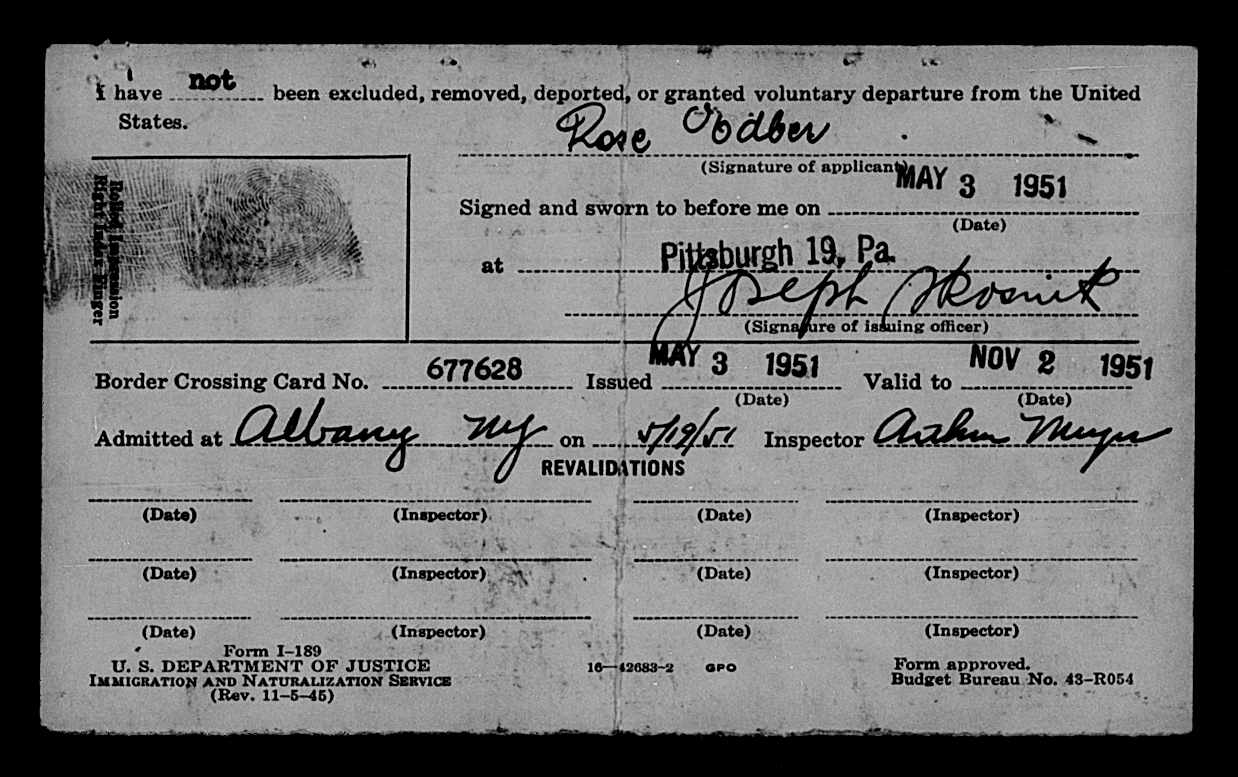 I have not been excluded, removed, deported, or granted voluntary departure from the United
States.
Rose
(Signature of applicant)
Rolled Impression
Right Index Finger
Signed and sworn to before me on MAY 3 1951
(Date)
at Pittsburgh 19, Pa.
Joseph
(Signature of issuing officer)
Border Crossing Card No. 677628 Issued MAY 3 1951 Valid to NOV 2 1951
(Date) (Date)
Admitted at Albany NY on 5/19/51 Inspector Arthur
REVALIDATIONS
(Date) (Inspector) (Date) (Inspector)
(Date) (Inspector) (Date) (Inspector)
(Date) (Inspector) (Date) (Inspector)
Form I-189
U. S. DEPARTMENT OF JUSTICE
IMMIGRATION AND NATURALIZATION SERVICE
(Rev. 11-5-45)
16—42683-2 GPO
Form approved.
Budget Bureau No. 43-R054